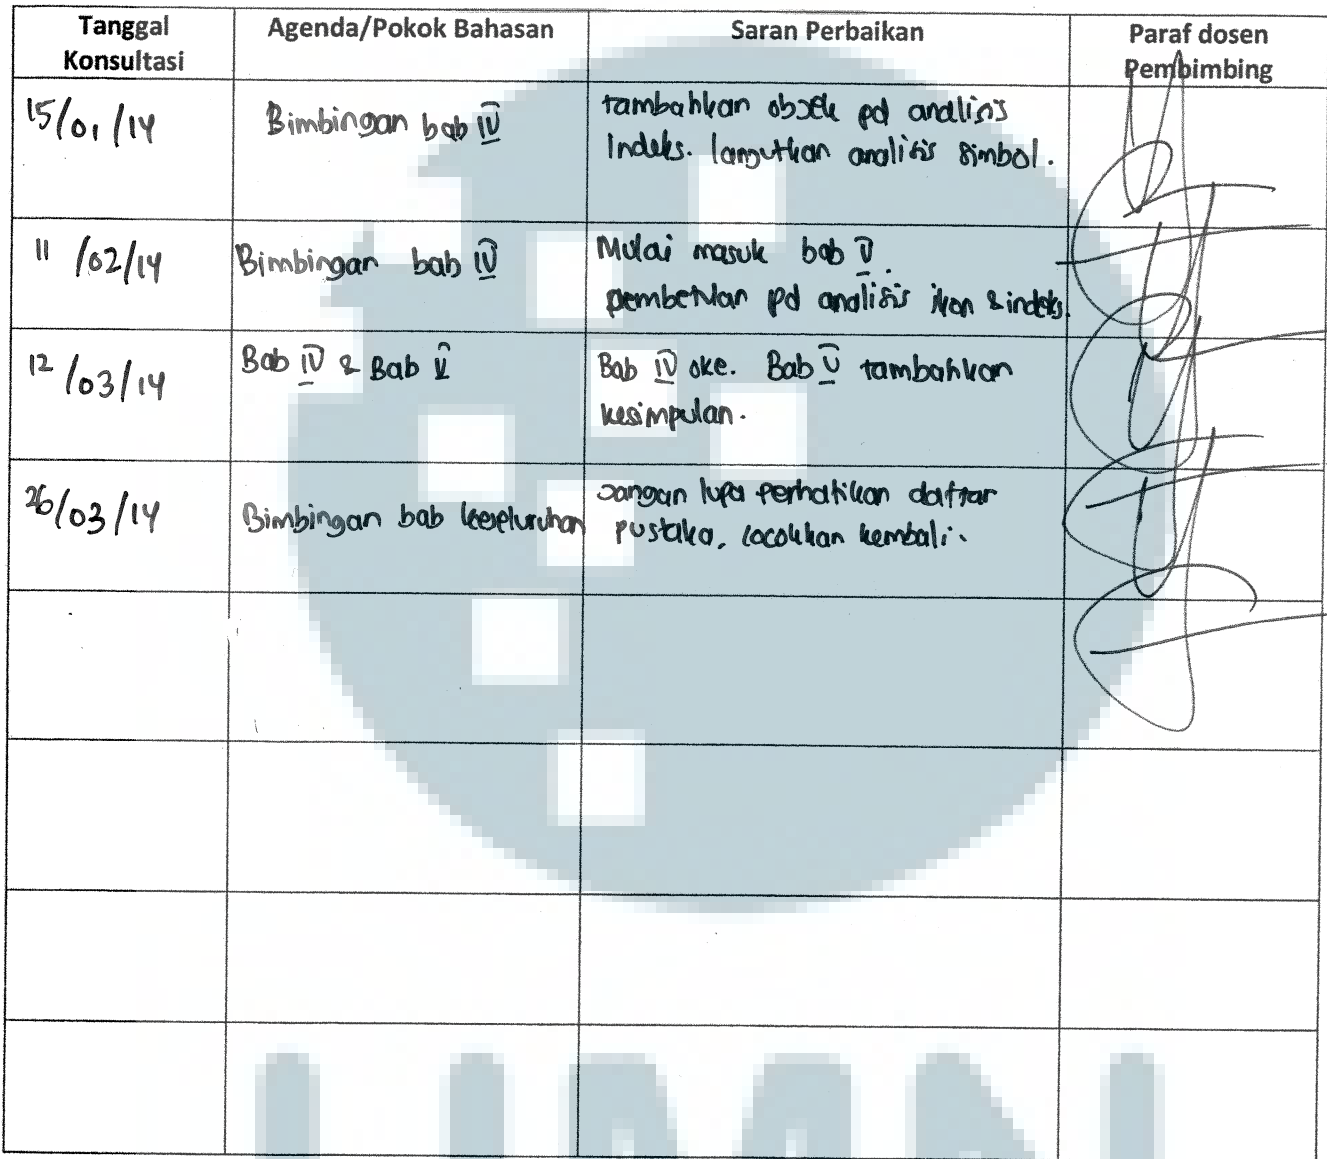 Tanggal Konsultasi	Agenda/Pokok Bahasan	Saran Perbaikan	Paraf dosen Pembimbing
15/01/14	Bimbingan bab IV	tambahkan objek pd analisis
Indeks. lanjutkan analisis simbol.
11/02/14	Bimbingan bab IV	Mulai masuk bab V.
pembetulan pd analisis ikon & indeks.
12/03/14	Bab IV & Bab V	Bab IV oke. Bab V tambahkan
kesimpulan.
26/03/14	Bimbingan bab keseluruhan	Jangan lupa perhatikan daftar
pustaka, cocokkan kembali.
UMN